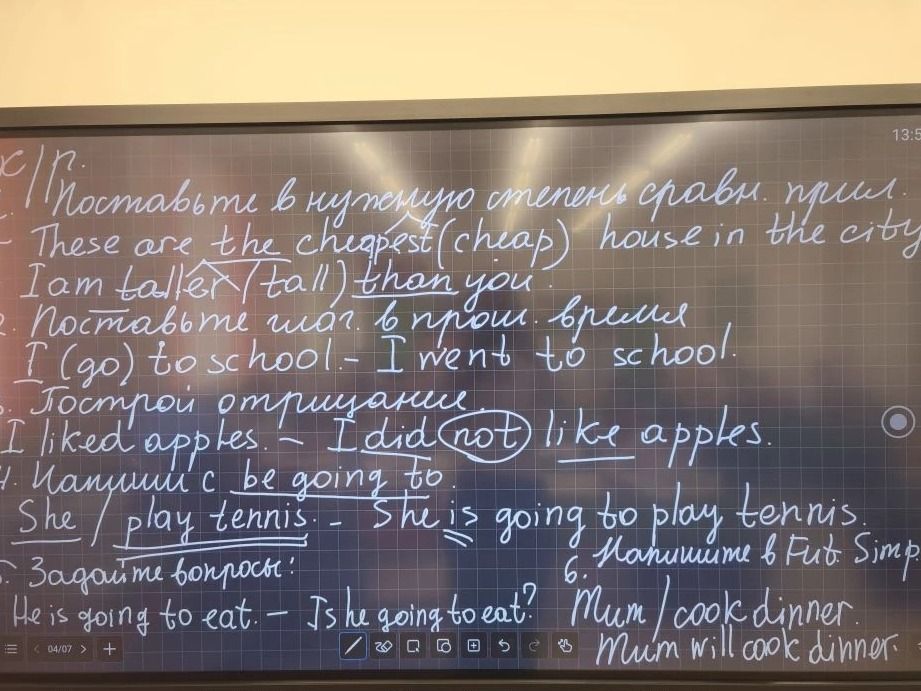 13:5
к/р.
Поставьте в нужную степень сравн. прил.
- These are the cheapest (cheap) house in the city
I am taller (tall) than you.
2. Поставьте глаг. в прош. время
I (go) to school. - I went to school.
3. Построй отрицание
I liked apples. - I did not like apples.
4. Напиши с be going to.
She / play tennis. - She is going to play tennis.
5. Задайте вопросы:
He is going to eat. - Is he going to eat?
6. Напишите в Fut. Simp.
Mum / cook dinner.
Mum will cook dinner.
04/07